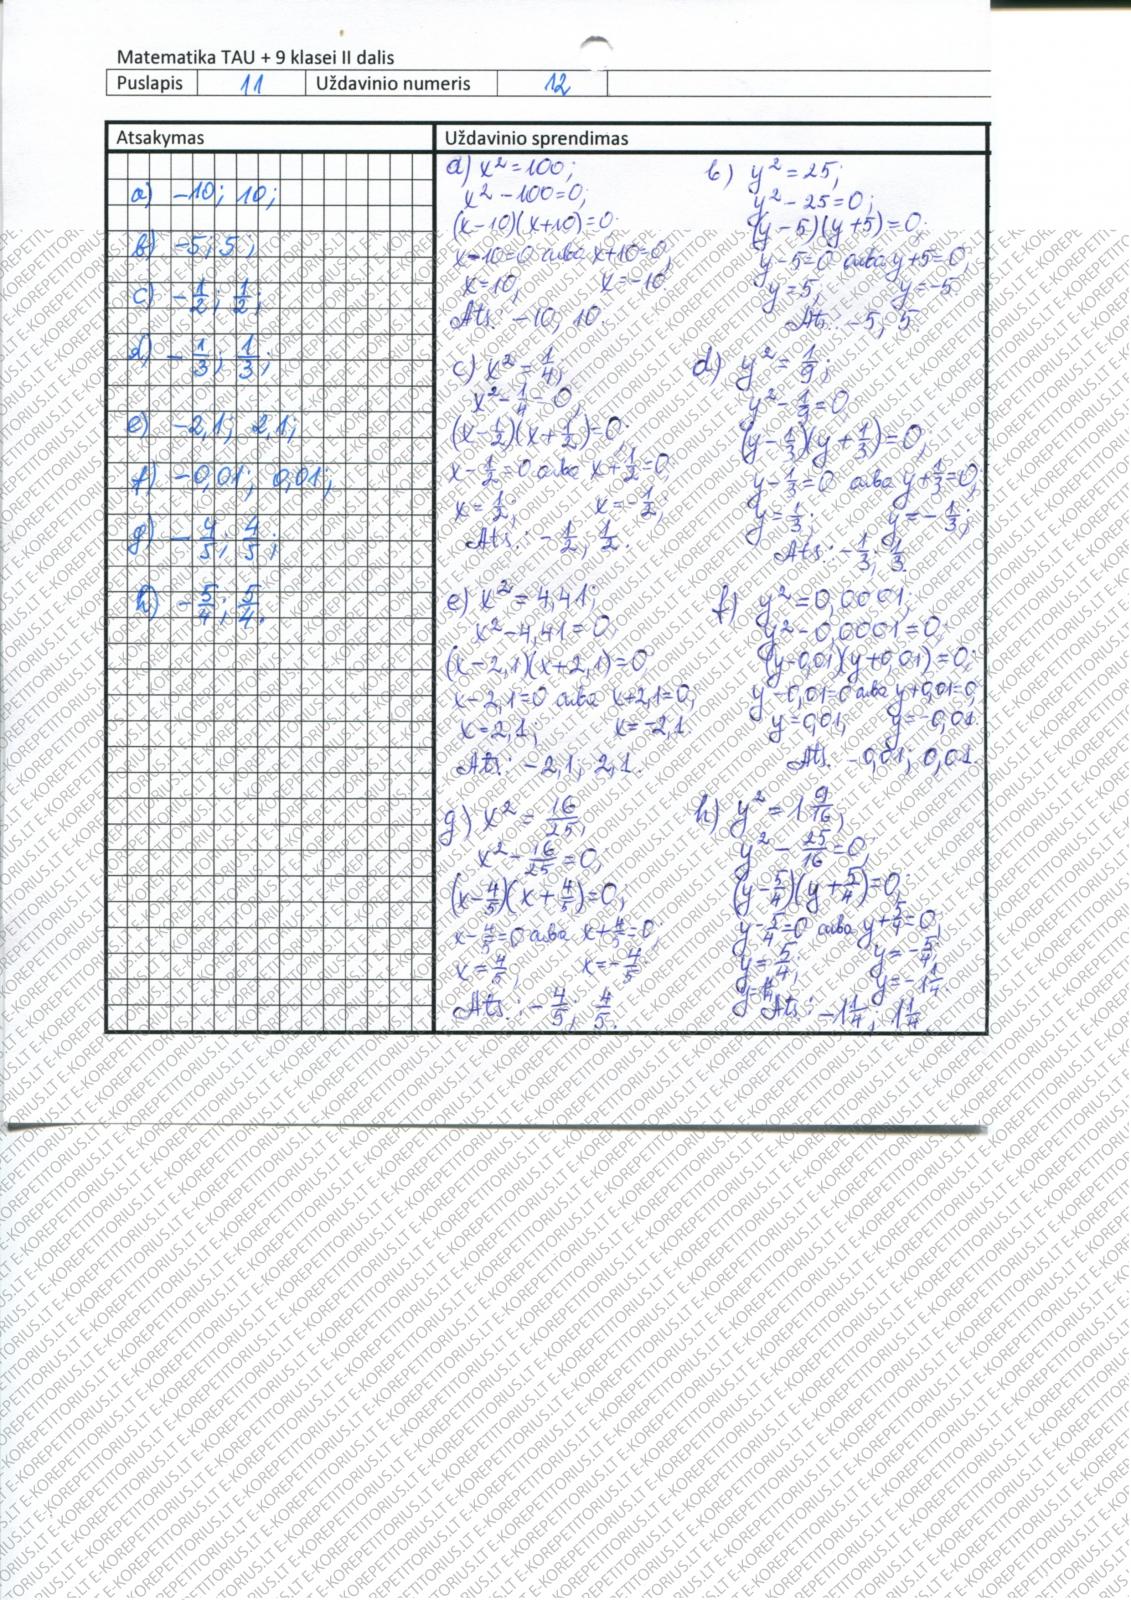 Matematika TAU + 9 klasei II dalis
Puslapis 11 Uždavinio numeris 12
Atsakymas
a) -10; 10;
b) -5; 5;
c) -1/2; 1/2;
d) -1/3; 1/3;
e) -2,1; 2,1;
f) -0,01; 0,01;
g) -4/5; 4/5;
h) -5/4; 5/4.
Uždavinio sprendimas
a) x² = 100;
x² - 100 = 0;
(x-10)(x+10)=0;
x-10=0 arba x+10=0;
x=10; x=-10.
Ats.: -10; 10.
b) y² = 25;
y² - 25 = 0;
(y-5)(y+5)=0;
y-5=0 arba y+5=0;
y=5; y=-5.
Ats.: -5; 5.
c) x² = 1/4;
x² - 1/4 = 0;
(x-1/2)(x+1/2)=0;
x-1/2=0 arba x+1/2=0;
x=1/2; x=-1/2;
Ats.: -1/2; 1/2.
d) y² = 1/9;
y² - 1/9 = 0;
(y-1/3)(y+1/3)=0;
y-1/3=0 arba y+1/3=0;
y=1/3; y=-1/3;
Ats.: -1/3; 1/3.
e) x² = 4,41;
x² - 4,41 = 0;
(x-2,1)(x+2,1)=0;
x-2,1=0 arba x+2,1=0;
x=2,1; x=-2,1.
Ats.: -2,1; 2,1.
f) y² = 0,0001;
y² - 0,0001 = 0;
(y-0,01)(y+0,01)=0;
y-0,01=0 arba y+0,01=0;
y=0,01; y=-0,01.
Ats.: -0,01; 0,01.
g) x² = 16/25;
x² - 16/25 = 0;
(x-4/5)(x+4/5)=0;
x-4/5=0 arba x+4/5=0;
x=4/5; x=-4/5.
Ats.: -4/5; 4/5.
h) y² = 1 9/16;
y² - 25/16 = 0;
(y-5/4)(y+5/4)=0;
y-5/4=0 arba y+5/4=0;
y=5/4; y=-5/4;
y=-1 1/4.
Ats.: -1 1/4; 1 1/4.
E-KOREPETITORIUS.LT